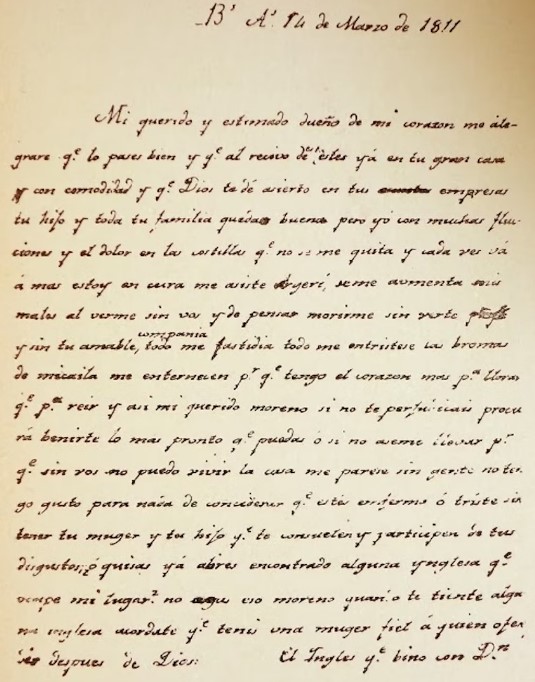 Bˢ Aˢ 14 de Marzo de 1811
Mi querido y estimado dueño de mi corazon me ale-
grare qᵉ lo pases bien y qᵉ al recivo de estes yá en tu gran casa
y con comodidad y qᵉ Dios te dé asierto en tus empresas
tu hijo y toda tu familia quedan buenos pero yó con muchas flu-
ciones y el dolor en las costillas qᵉ no se me quita y cada ves vá
á mas estoy en cura me asiste Argerí, se me aumenta mis
males al verme sin vos y de pensar morirme sin verte
y sin tu amable compania, todo me fastidia todo me entristese las bromas
de micaila me enternecen pʳ qᵉ tengo el corazon mas pᵃ llorar
qᵉ pᵃ reir y asi mi querido moreno si no te perjudicais procu
rá benirte lo mas pronto qᵉ puedas ó si no aseme llevar pʳ
qᵉ sin vos no puedo vivir la casa me parese sin gente no ten-
go gusto para nada de concíderar qᵉ estés enfermo ó triste sin
tener tu muger y tu hijo qᵉ te consuelen y participen de tus
disgustos; ó quisas yá abres encontrado alguna ynglesa qᵉ
ocupe mi lugar? no agas eso moreno quando te tiente algu
na inglesa acordate qᵉ tenés una muger fiel á quien ofen
des despues de Dios: El Ingles qᵉ bino con Dⁿ